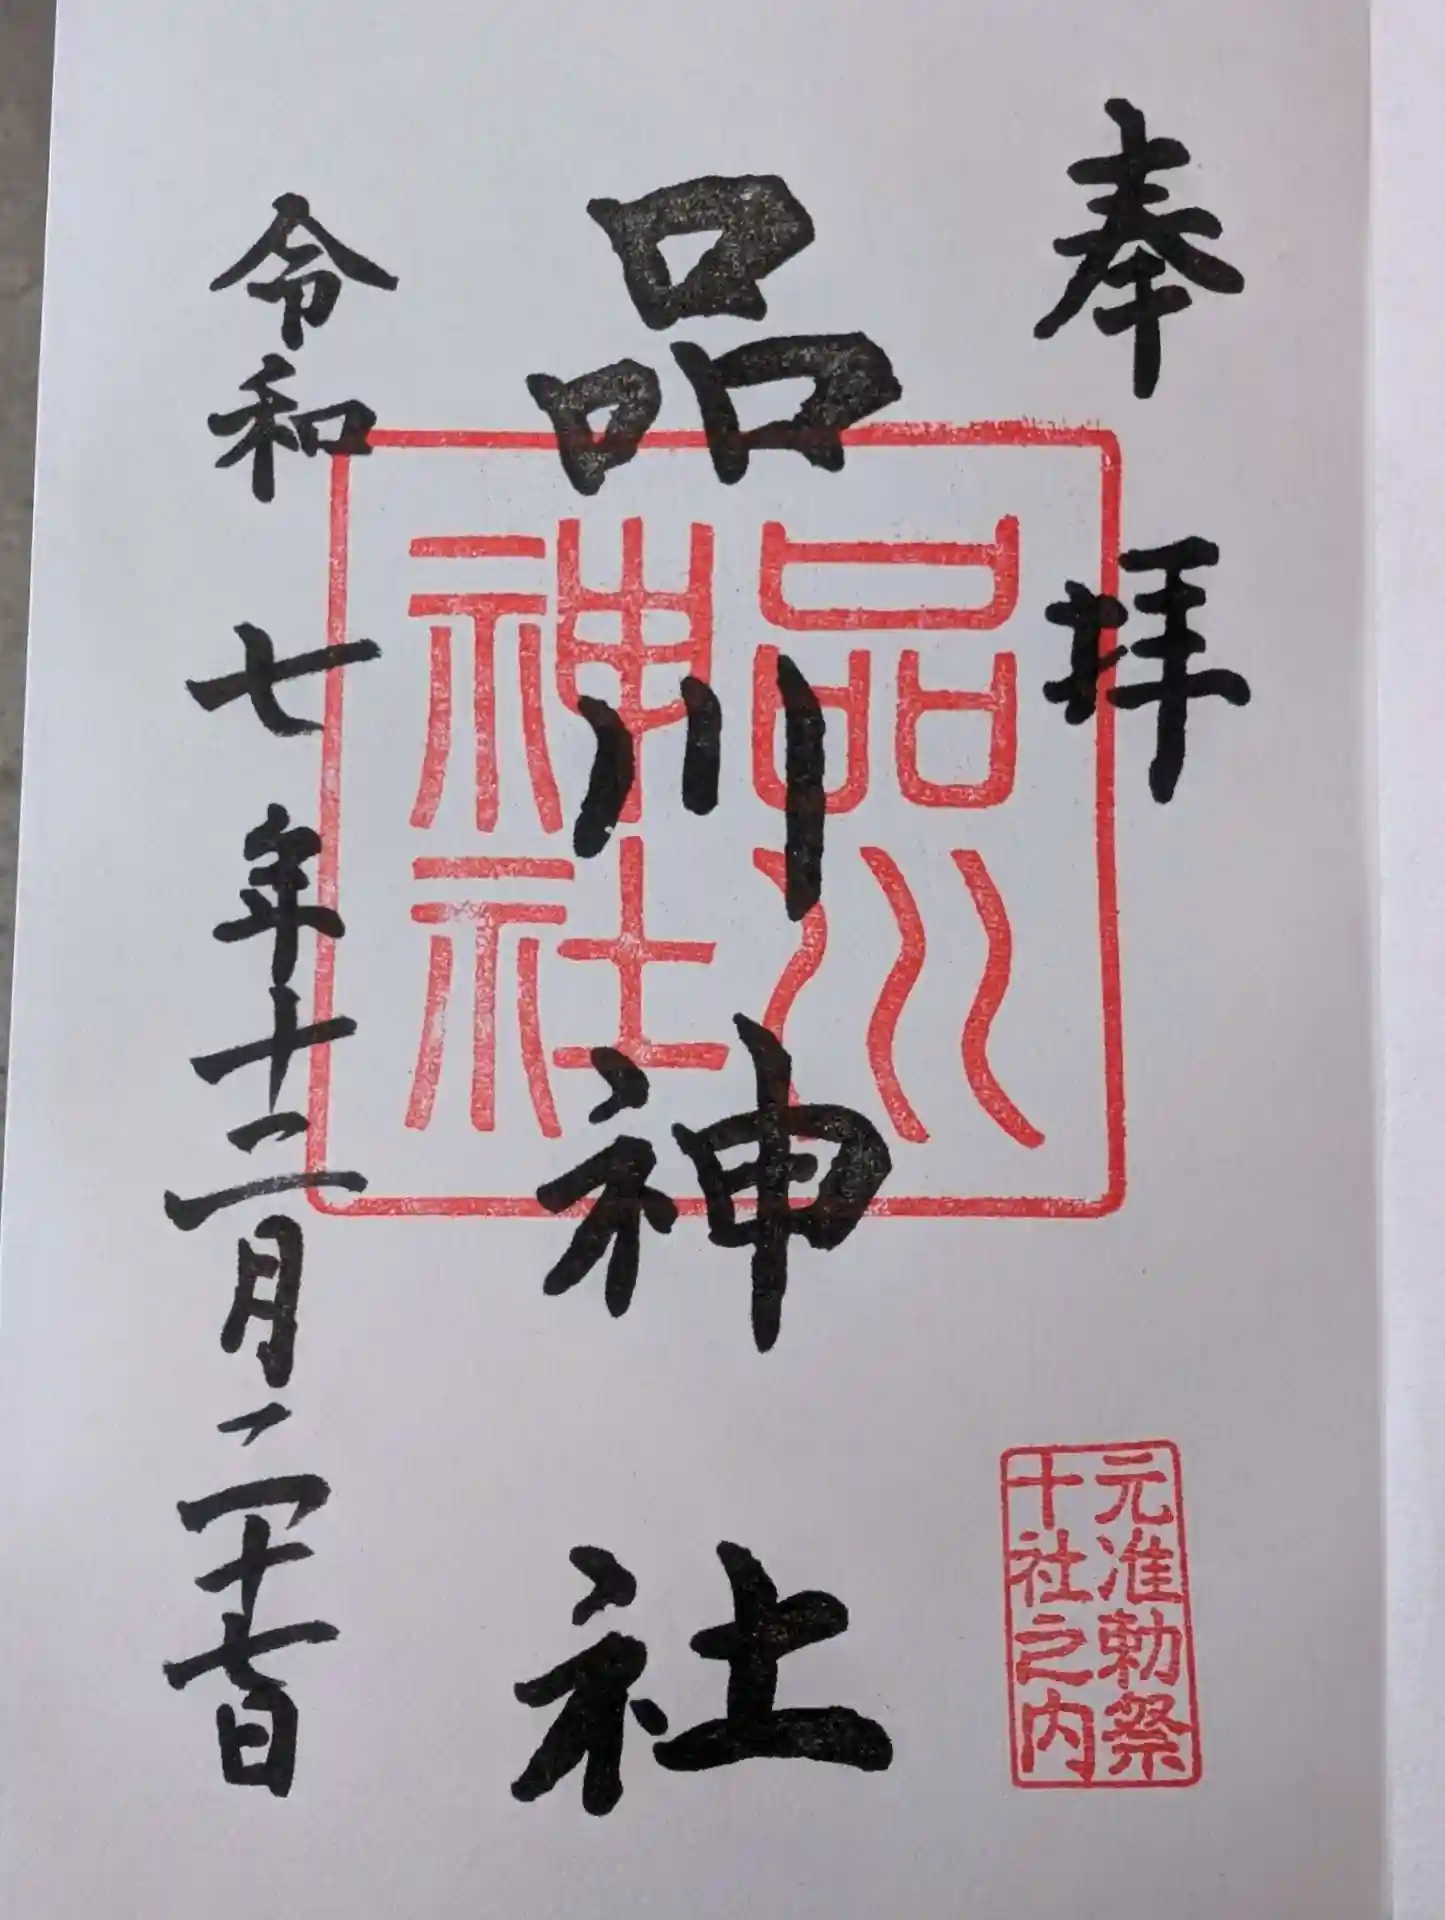 奉拝
元准勅祭
十社之内
品川神社
品川
神社
令和七年十二月二十七日